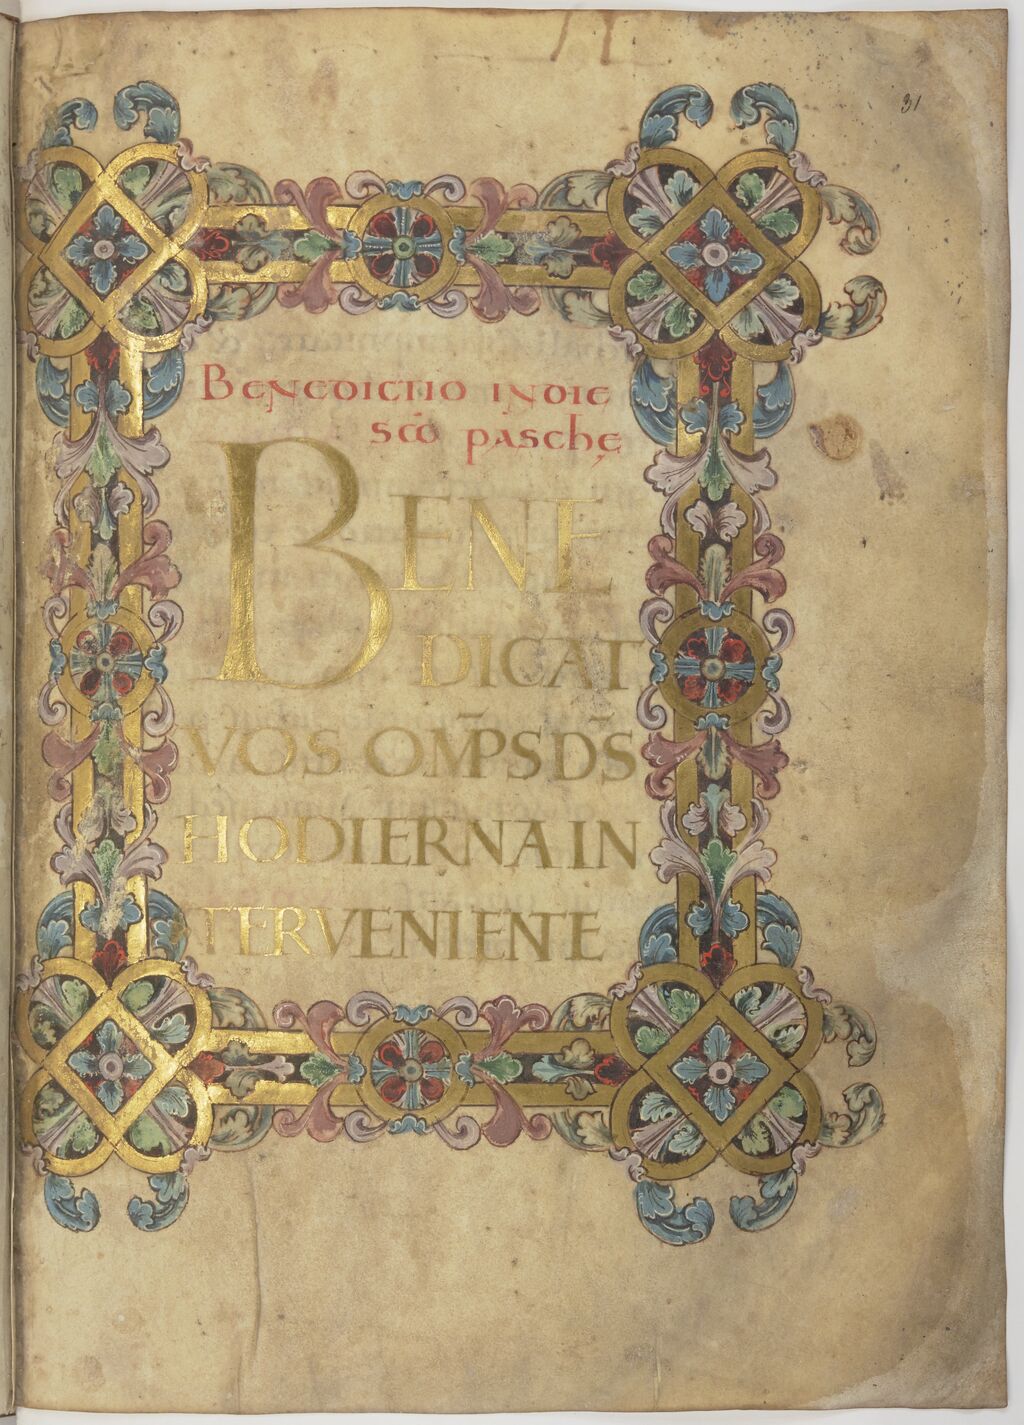 31
BENEDICTIO IN DIE
SCŌ pasche
BENE
DICAT
VOS OM̄PS D̄S
HODIERNA IN
TERVENIENTE